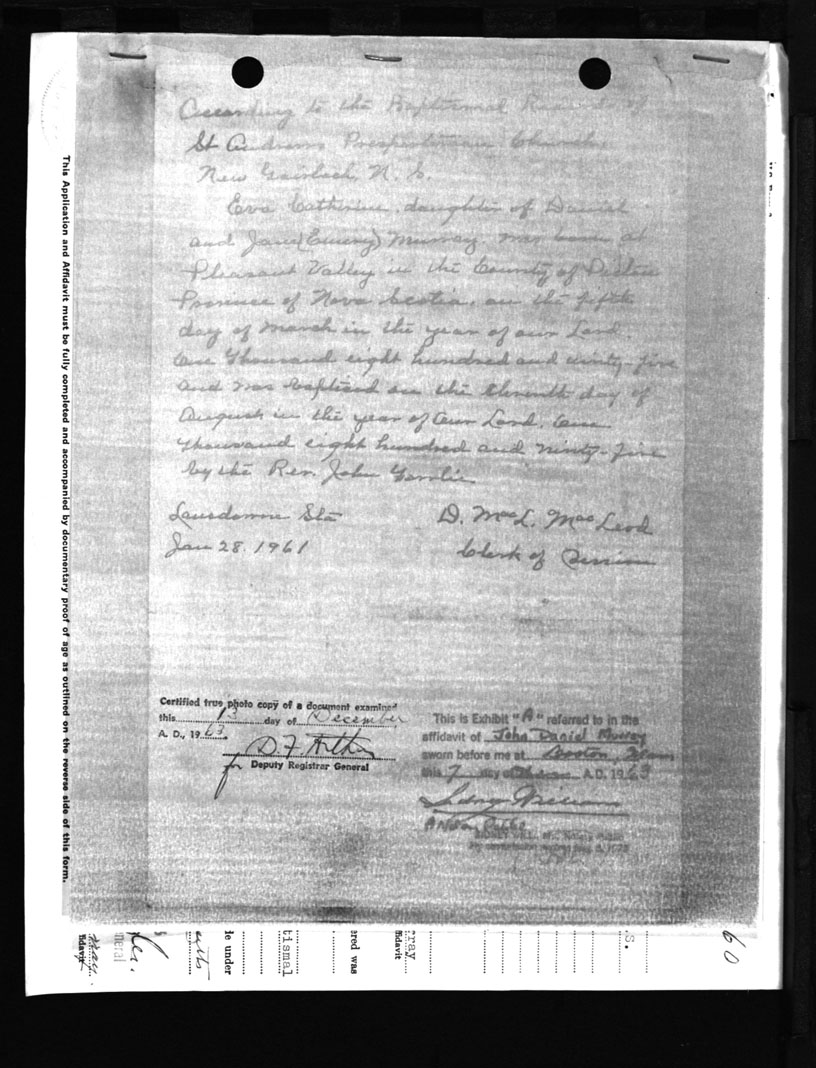 According to the Baptismal Record of
St Andrews Presbyterian Church,
New Gairloch, N. S.
Eva Catherine, daughter of Daniel
and Jane (Emery) Murray, was born at
Pleasant Valley in the County of Pictou
Province of Nova Scotia, on the fifth
day of March in the year of our Lord.
One Thousand eight hundred and ninty-five
and was baptised on the eleventh day of
August in the year of Our Lord, One
thousand eight hundred and ninty-five
by the Rev. John
Lansdowne Sta
Jan 28. 1961
D. MacL. MacLeod
Clerk of Session
Certified true photo copy of a document examined
this 13 day of December
A. D., 1963
D. F.
for Deputy Registrar General
This is Exhibit "A" referred to in the
affidavit of John Daniel Murray
sworn before me at Boston, Mass
this 7 day of A.D. 1963
A Notary Public
This Application and Affidavit must be fully completed and accompanied by documentary proof of age as outlined on the reverse side of this form.
fidavit
neral
le under
tismal
ered was
rray
fidavit
S.
60